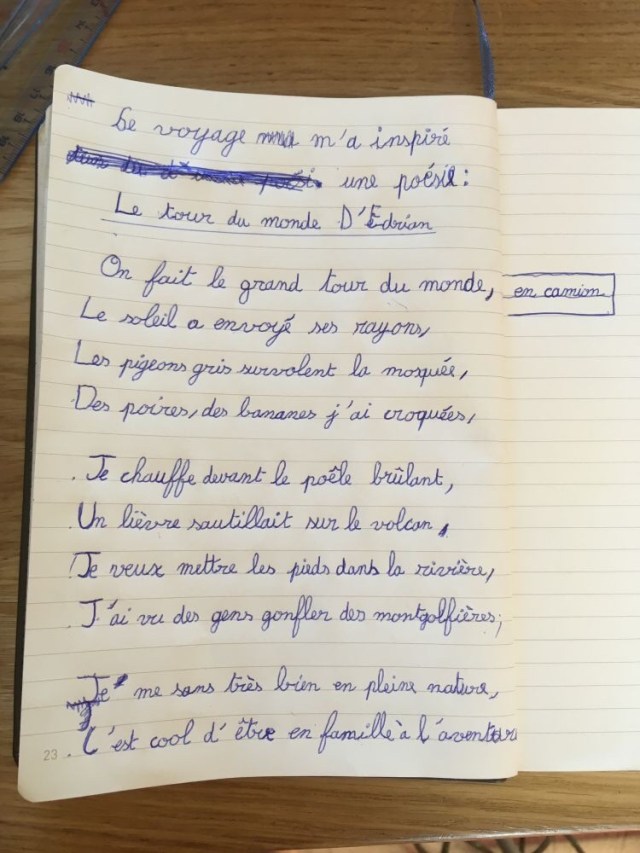 Ce voyage m'a inspiré
une poésie:
Le tour du monde D'Edrian
On fait le grand tour du monde, en camion
Le soleil a envoyé ses rayons,
Les pigeons gris survolent la mosquée,
Des poires, des bananes j'ai croquées,
Je chauffe devant le poêle brûlant,
Un lièvre sautillait sur le volcan,
Je veux mettre les pieds dans la rivière,
J'ai vu des gens gonfler des montgolfières;
Je me sens très bien en pleine nature,
C'est cool d'être en famille à l'aventure
23